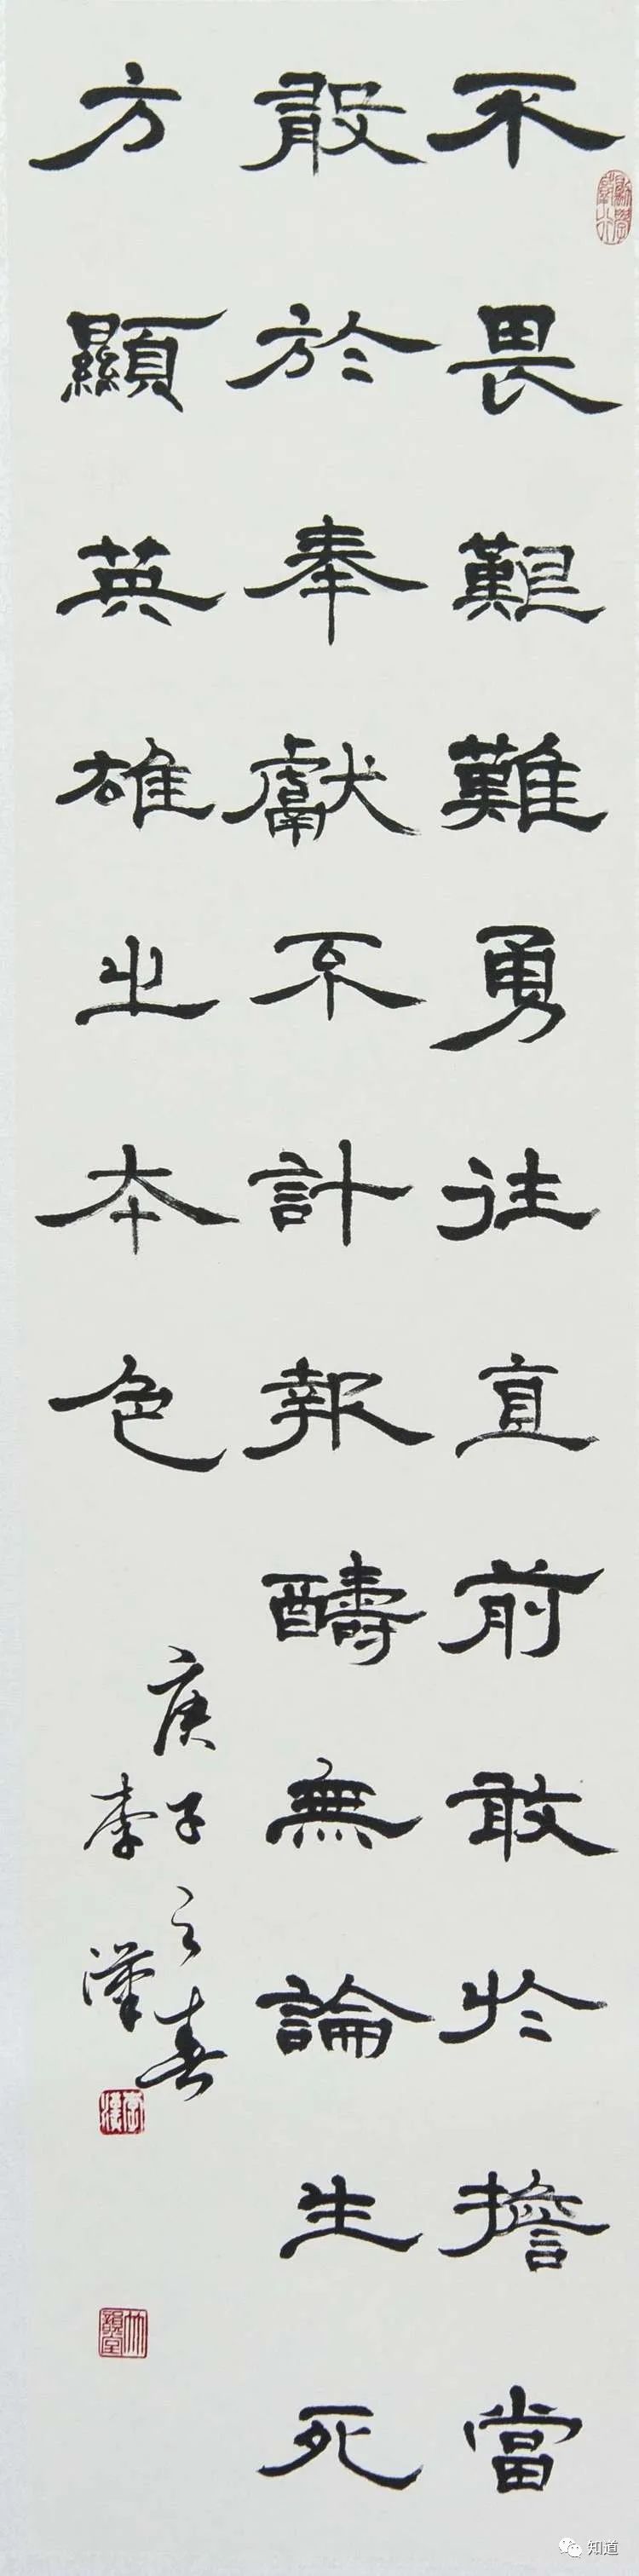 不畏艱難勇往直前敢於擔當
敢於奉獻不計報醻無論生死
方顯英雄之本色
庚子之春
李漢
李漢
知道